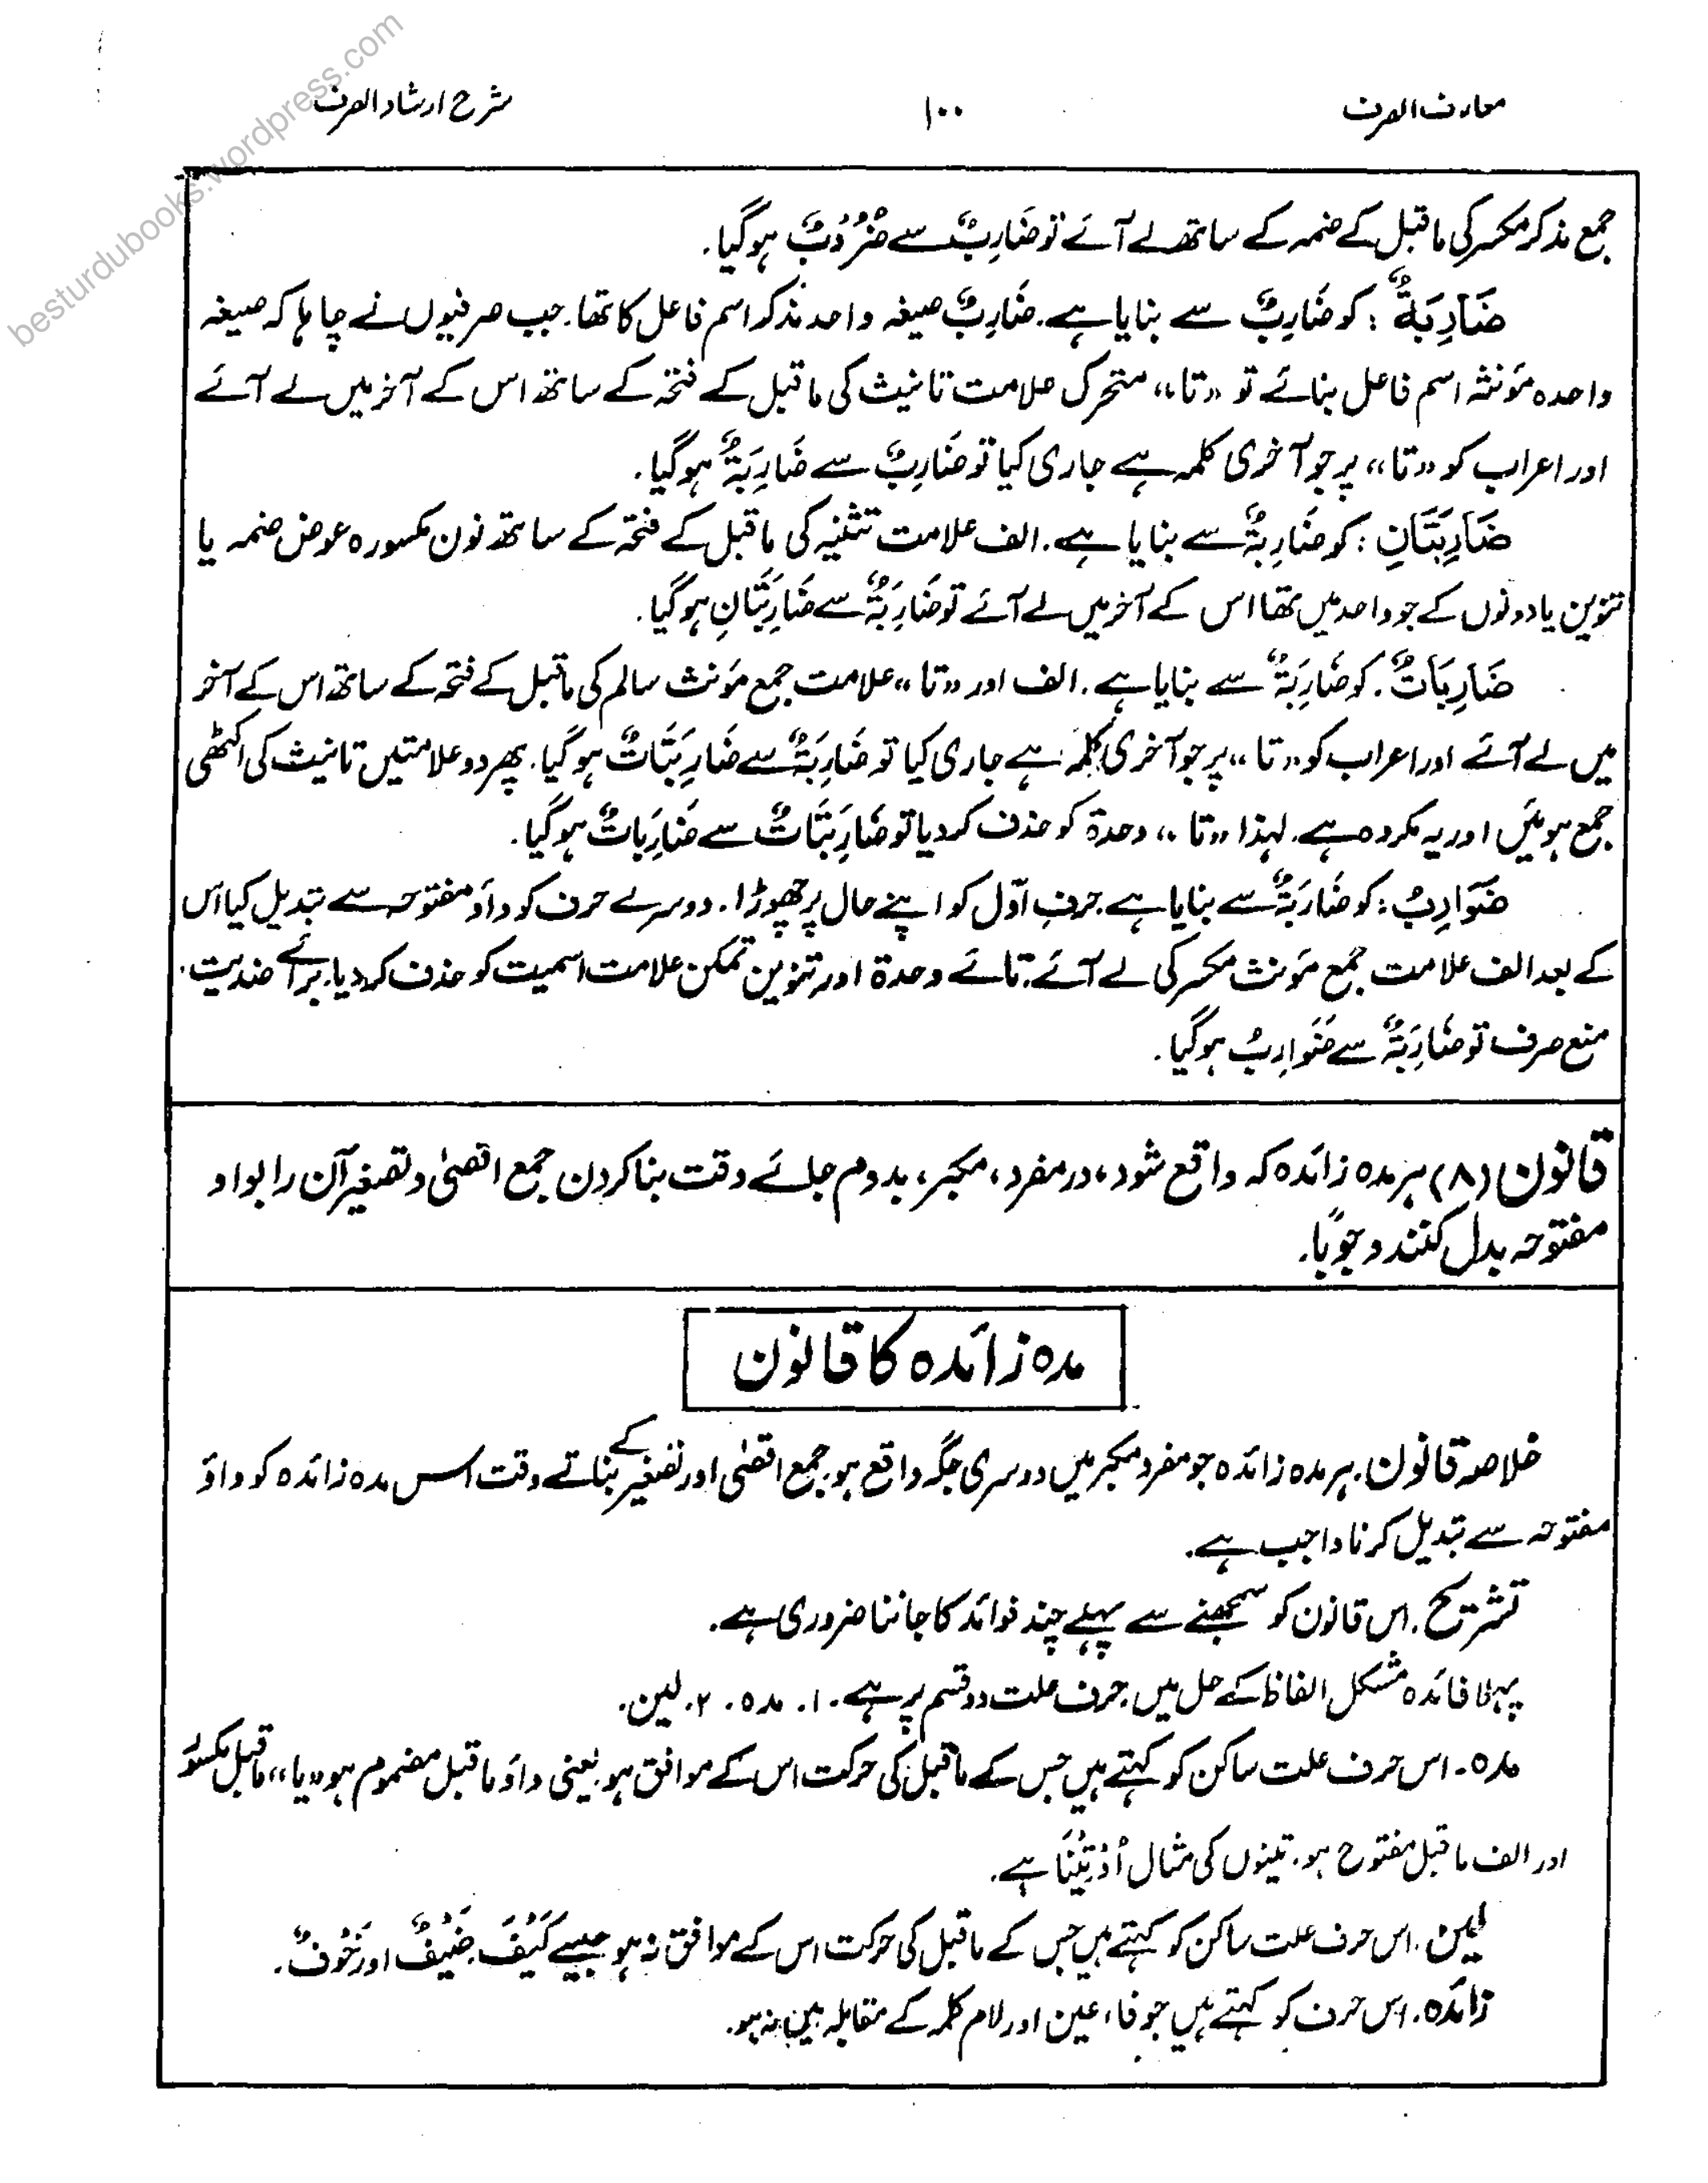 besturdubooks.wordpress.com
معارف الصرف ۱۰۰ شرح ارشاد الصرف
جمع مذکر مکسر کی ماقبل کے ضمہ کے ساتھ لے آئے تو ضَارِبٌ سے ضُرُوْبٌ ہوگیا۔
ضَارِبَةٌ : کو ضَارِبٌ سے بنایا ہے۔ ضَارِبٌ صیغہ واحد مذکر اسم فاعل کا تھا۔ جب صرفیوں نے چاہا کہ صیغہ
واحدہ مؤنثہ اسم فاعل بنائے تو "تا" متحرک علامت تانیث کی ماقبل کے فتحہ کے ساتھ اس کے آخر میں لے آئے
اور اعراب کو "تا" پر جو آخری کلمہ ہے جاری کیا تو ضَارِبٌ سے ضَارِبَةٌ ہوگیا۔
ضَارِبَتَانِ : کو ضَارِبَةٌ سے بنایا ہے۔ الف علامت تثنیہ کی ماقبل کے فتحہ کے ساتھ نون مکسورہ عوض ضمہ یا
تنوین یا دونوں کے جو واحد میں تھا اس کے آخر میں لے آئے تو ضَارِبَةٌ سے ضَارِبَتَانِ ہوگیا۔
ضَارِبَاتٌ۔ کو ضَارِبَةٌ سے بنایا ہے۔ الف اور "تا" علامت جمع مؤنث سالم کی ماقبل کے فتحہ کے ساتھ اس کے آخر
میں لے آئے اور اعراب کو "تا" پر جو آخری کلمہ ہے جاری کیا تو ضَارِبَةٌ سے ضَارِبَتَاتٌ ہوگیا۔ پھر دو علامتیں تانیث کی اکٹھی
جمع ہوئیں اور یہ مکروہ ہے۔ لہذا "تا" وحدۃ کو حذف کردیا تو ضَارِبَتَاتٌ سے ضَارِبَاتٌ ہوگیا۔
ضَوَارِبُ : کو ضَارِبَةٌ سے بنایا ہے حرف اوّل کو اپنے حال پر چھوڑا۔ دوسرے حرف کو واؤ مفتوحہ سے تبدیل کیا اس
کے بعد الف علامت جمع مؤنث مکسر کی لے آئے۔ تائے وحدۃ اور تنوین تمکن علامت اسمیت کو حذف کردیا۔ برائے ضدیت
منع صرف تو ضَارِبَةٌ سے ضَوَارِبُ ہوگیا۔
قانون (۸) ہر مدہ زائدہ کہ واقع شود، در مفرد، مکبر، بدوم جائے وقت بنا کردن جمع اقصیٰ و تصغیر آن را بواو
مفتوحہ بدل کنند وجوبًا۔
مدہ زائدہ کا قانون
خلاصہ قانون۔ ہر مدہ زائدہ جو مفرد مکبر میں دوسری جگہ واقع ہو۔ جمع اقصٰی اور تصغیر کے بناتے وقت اس مدہ زائدہ کو واؤ
مفتوحہ سے تبدیل کرنا واجب ہے۔
تشریح۔ اس قانون کو سمجھنے سے پہلے چند فوائد کا جاننا ضروری ہے۔
پہلا فائدہ مشکل الفاظ کے حل میں۔ حرف علت دو قسم پر ہے۔ ۱۔ مدہ۔ ۲۔ لین۔
مدہ۔ اس حرف علت ساکن کو کہتے ہیں جس کے ماقبل کی حرکت اس کے موافق ہو۔ یعنی واؤ ماقبل مضموم ہو "یا" ماقبل مکسور
اور الف ماقبل مفتوح ہو۔ تینوں کی مثال اُوْتِيْنَا ہے۔
لین۔ اس حرف علت ساکن کو کہتے ہیں جس کے ماقبل کی حرکت اس کے موافق نہ ہو جیسے كَيْفَ۔ ضَيْفٌ اور خَوْفٌ۔
زائدہ۔ اس حرف کو کہتے ہیں جو فا، عین اور لام کلمہ کے مقابلہ میں نہ ہو۔